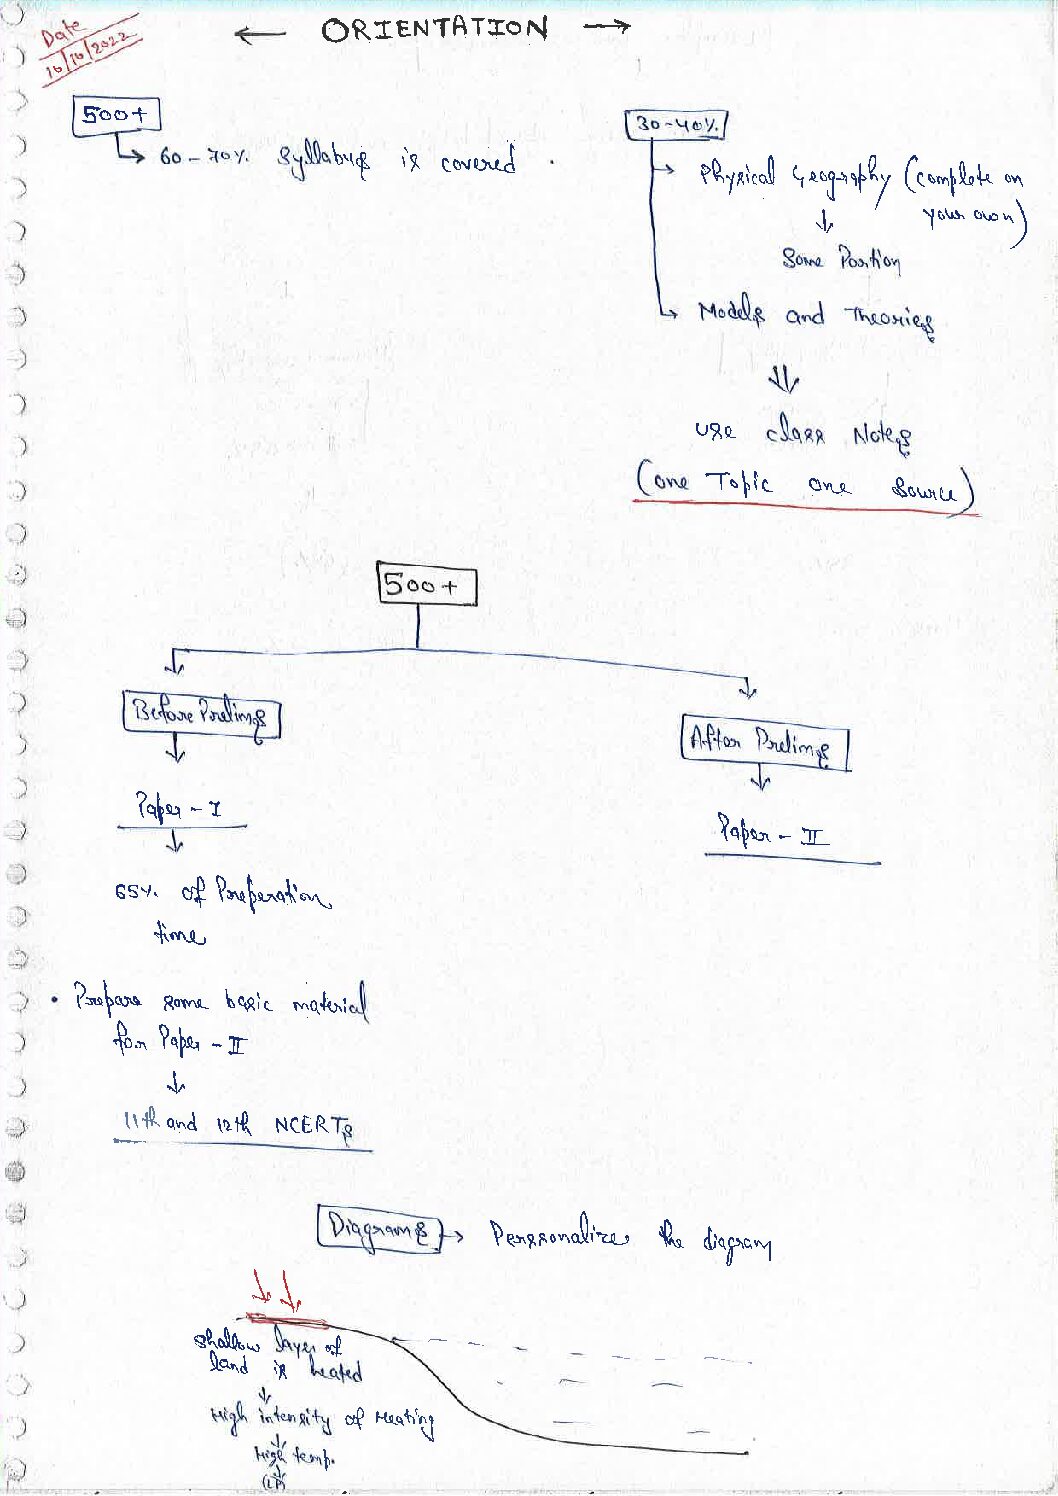 Date
16/10/2022
← ORIENTATION →
500+
60-70% Syllabus is covered.
30-40%
Physical Geography (complete on
your own)
Some Portion
Models and Theories
use class Notes
(one Topic one Source)
500+
Before Prelims
After Prelims
Paper - I
Paper - II
65% of Preperation
time
• Prepare some basic material
for Paper - II
11th and 12th NCERTs
Diagrams → Perssonalize the diagram
shallow layer of
land is heated
High intensity of Heating
High temp.
(LP)